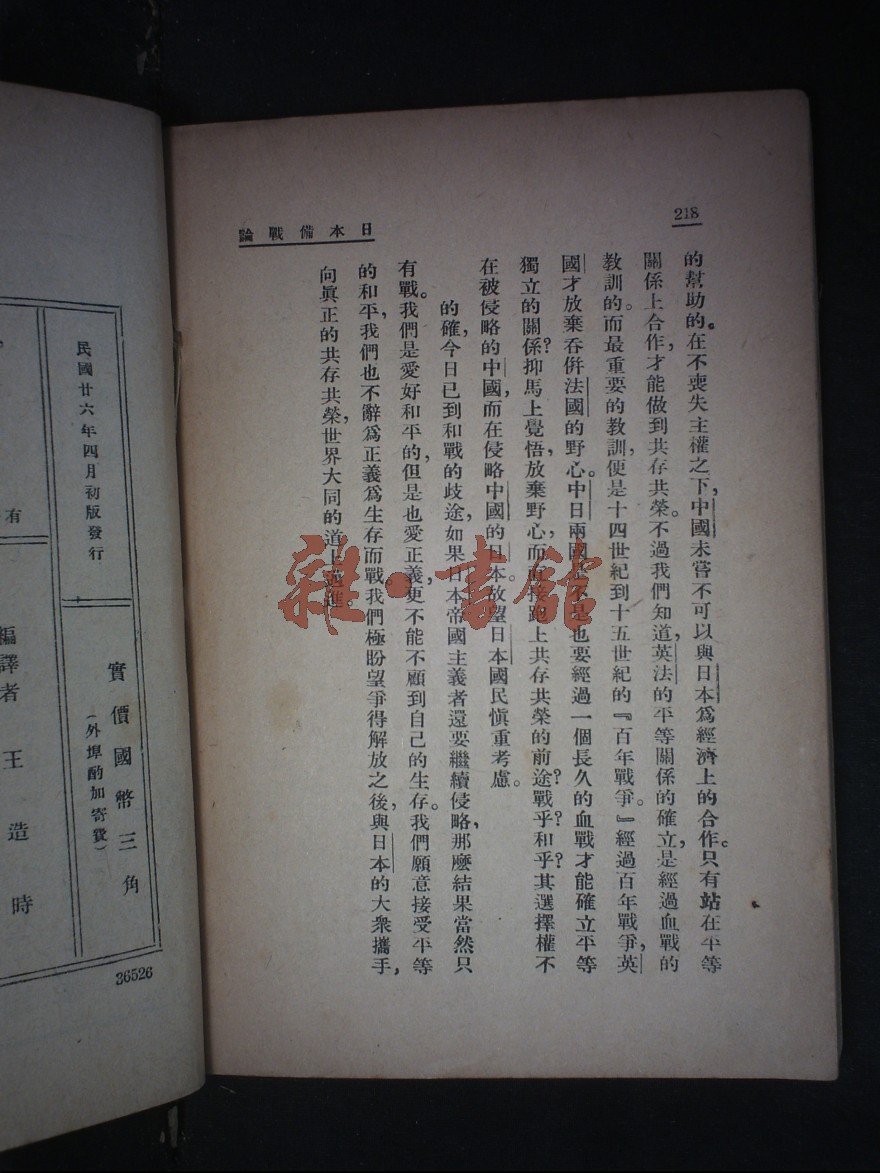 218
日本備戰論
的幫助的。在不喪失主權之下，中國未嘗不可以與日本爲經濟上的合作。只有站在平等
關係上合作，才能做到共存共榮。不過我們知道，英法的平等關係的確立，是經過血戰的
教訓的。而最重要的教訓，便是十四世紀到十五世紀的『百年戰爭。』經過百年戰爭，英
國才放棄吞併法國的野心。中日兩國是不是也要經過一個長久的血戰才能確立平等
獨立的關係？抑馬上覺悟，放棄野心，而直接跑上共存共榮的前途？戰乎？和乎？其選擇權不
在被侵略的中國，而在侵略中國的日本。故望日本國民愼重考慮。
的確，今日已到和戰的歧途，如果日本帝國主義者還要繼續侵略，那麼結果當然只
有戰。我們是愛好和平的，但是也愛正義，更不能不顧到自己的生存。我們願意接受平等
的和平，我們也不辭爲正義爲生存而戰。我們極盼望爭得解放之後，與日本的大衆攜手，
向眞正的共存共榮，世界大同的道上邁進。
雜·書館
民國廿六年四月初版發行
有
實價國幣三角
（外埠酌加寄費）
編譯者 王造時
36526